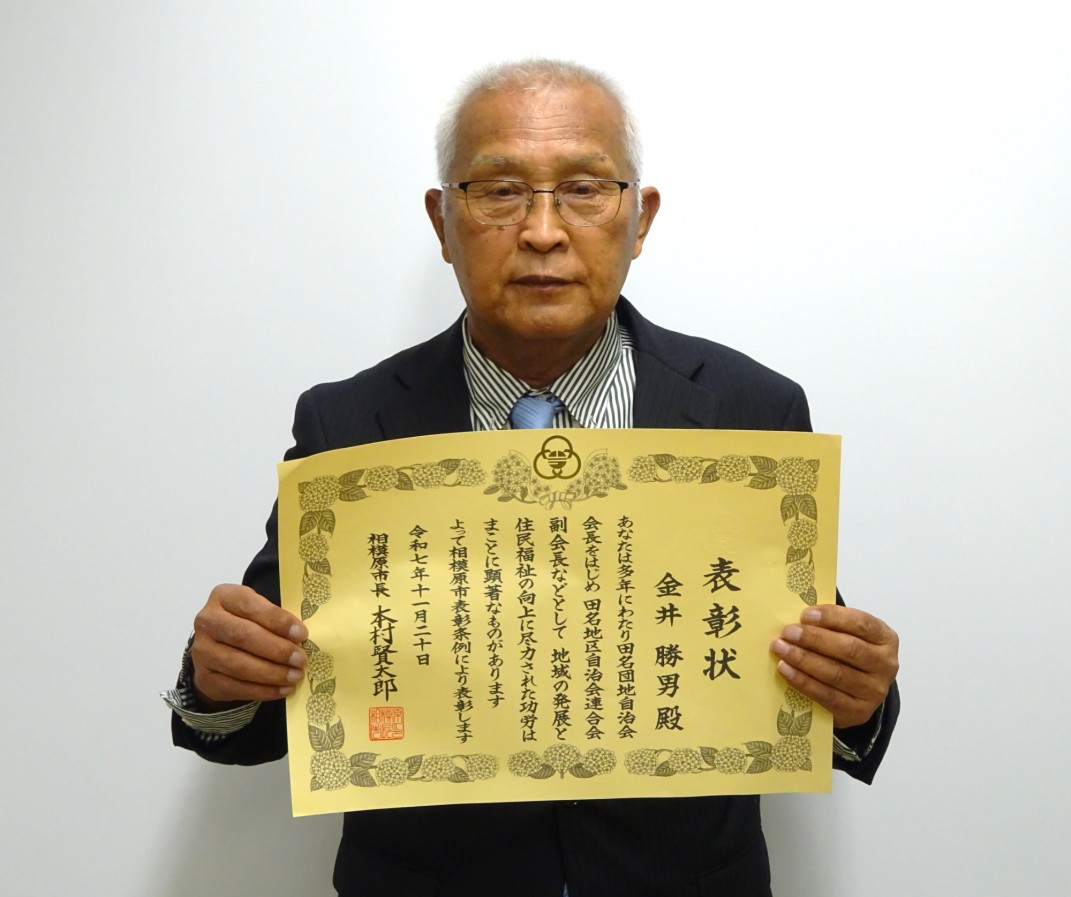 表彰状
金井勝男殿
あなたは多年にわたり田名団地自治会
会長をはじめ 田名地区自治会連合会
副会長などとして 地域の発展と
住民福祉の向上に尽力された功労は
まことに顕著なものがあります
よって相模原市表彰条例により表彰します
令和七年十一月二十日
相模原市長 本村賢太郎